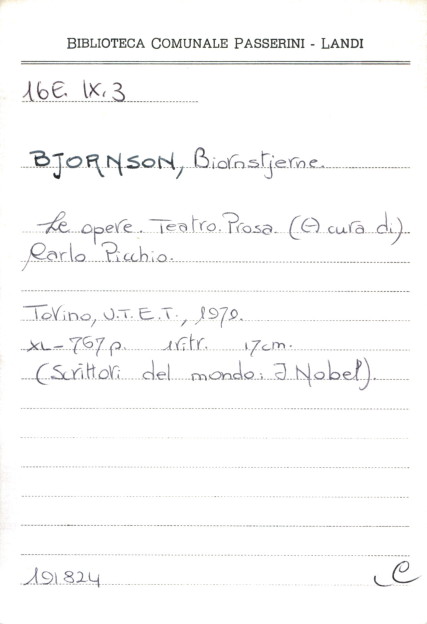 BIBLIOTECA COMUNALE PASSERINI - LANDI
16E. IX. 3
BJORNSON, Biornstjerne.
Le opere. Teatro. Prosa. (A cura di)
Carlo Picchio.
Torino, U.T.E.T., 1970.
XL-767 p. ritr. 17cm.
(Scrittori del mondo: I Nobel).
191824
C